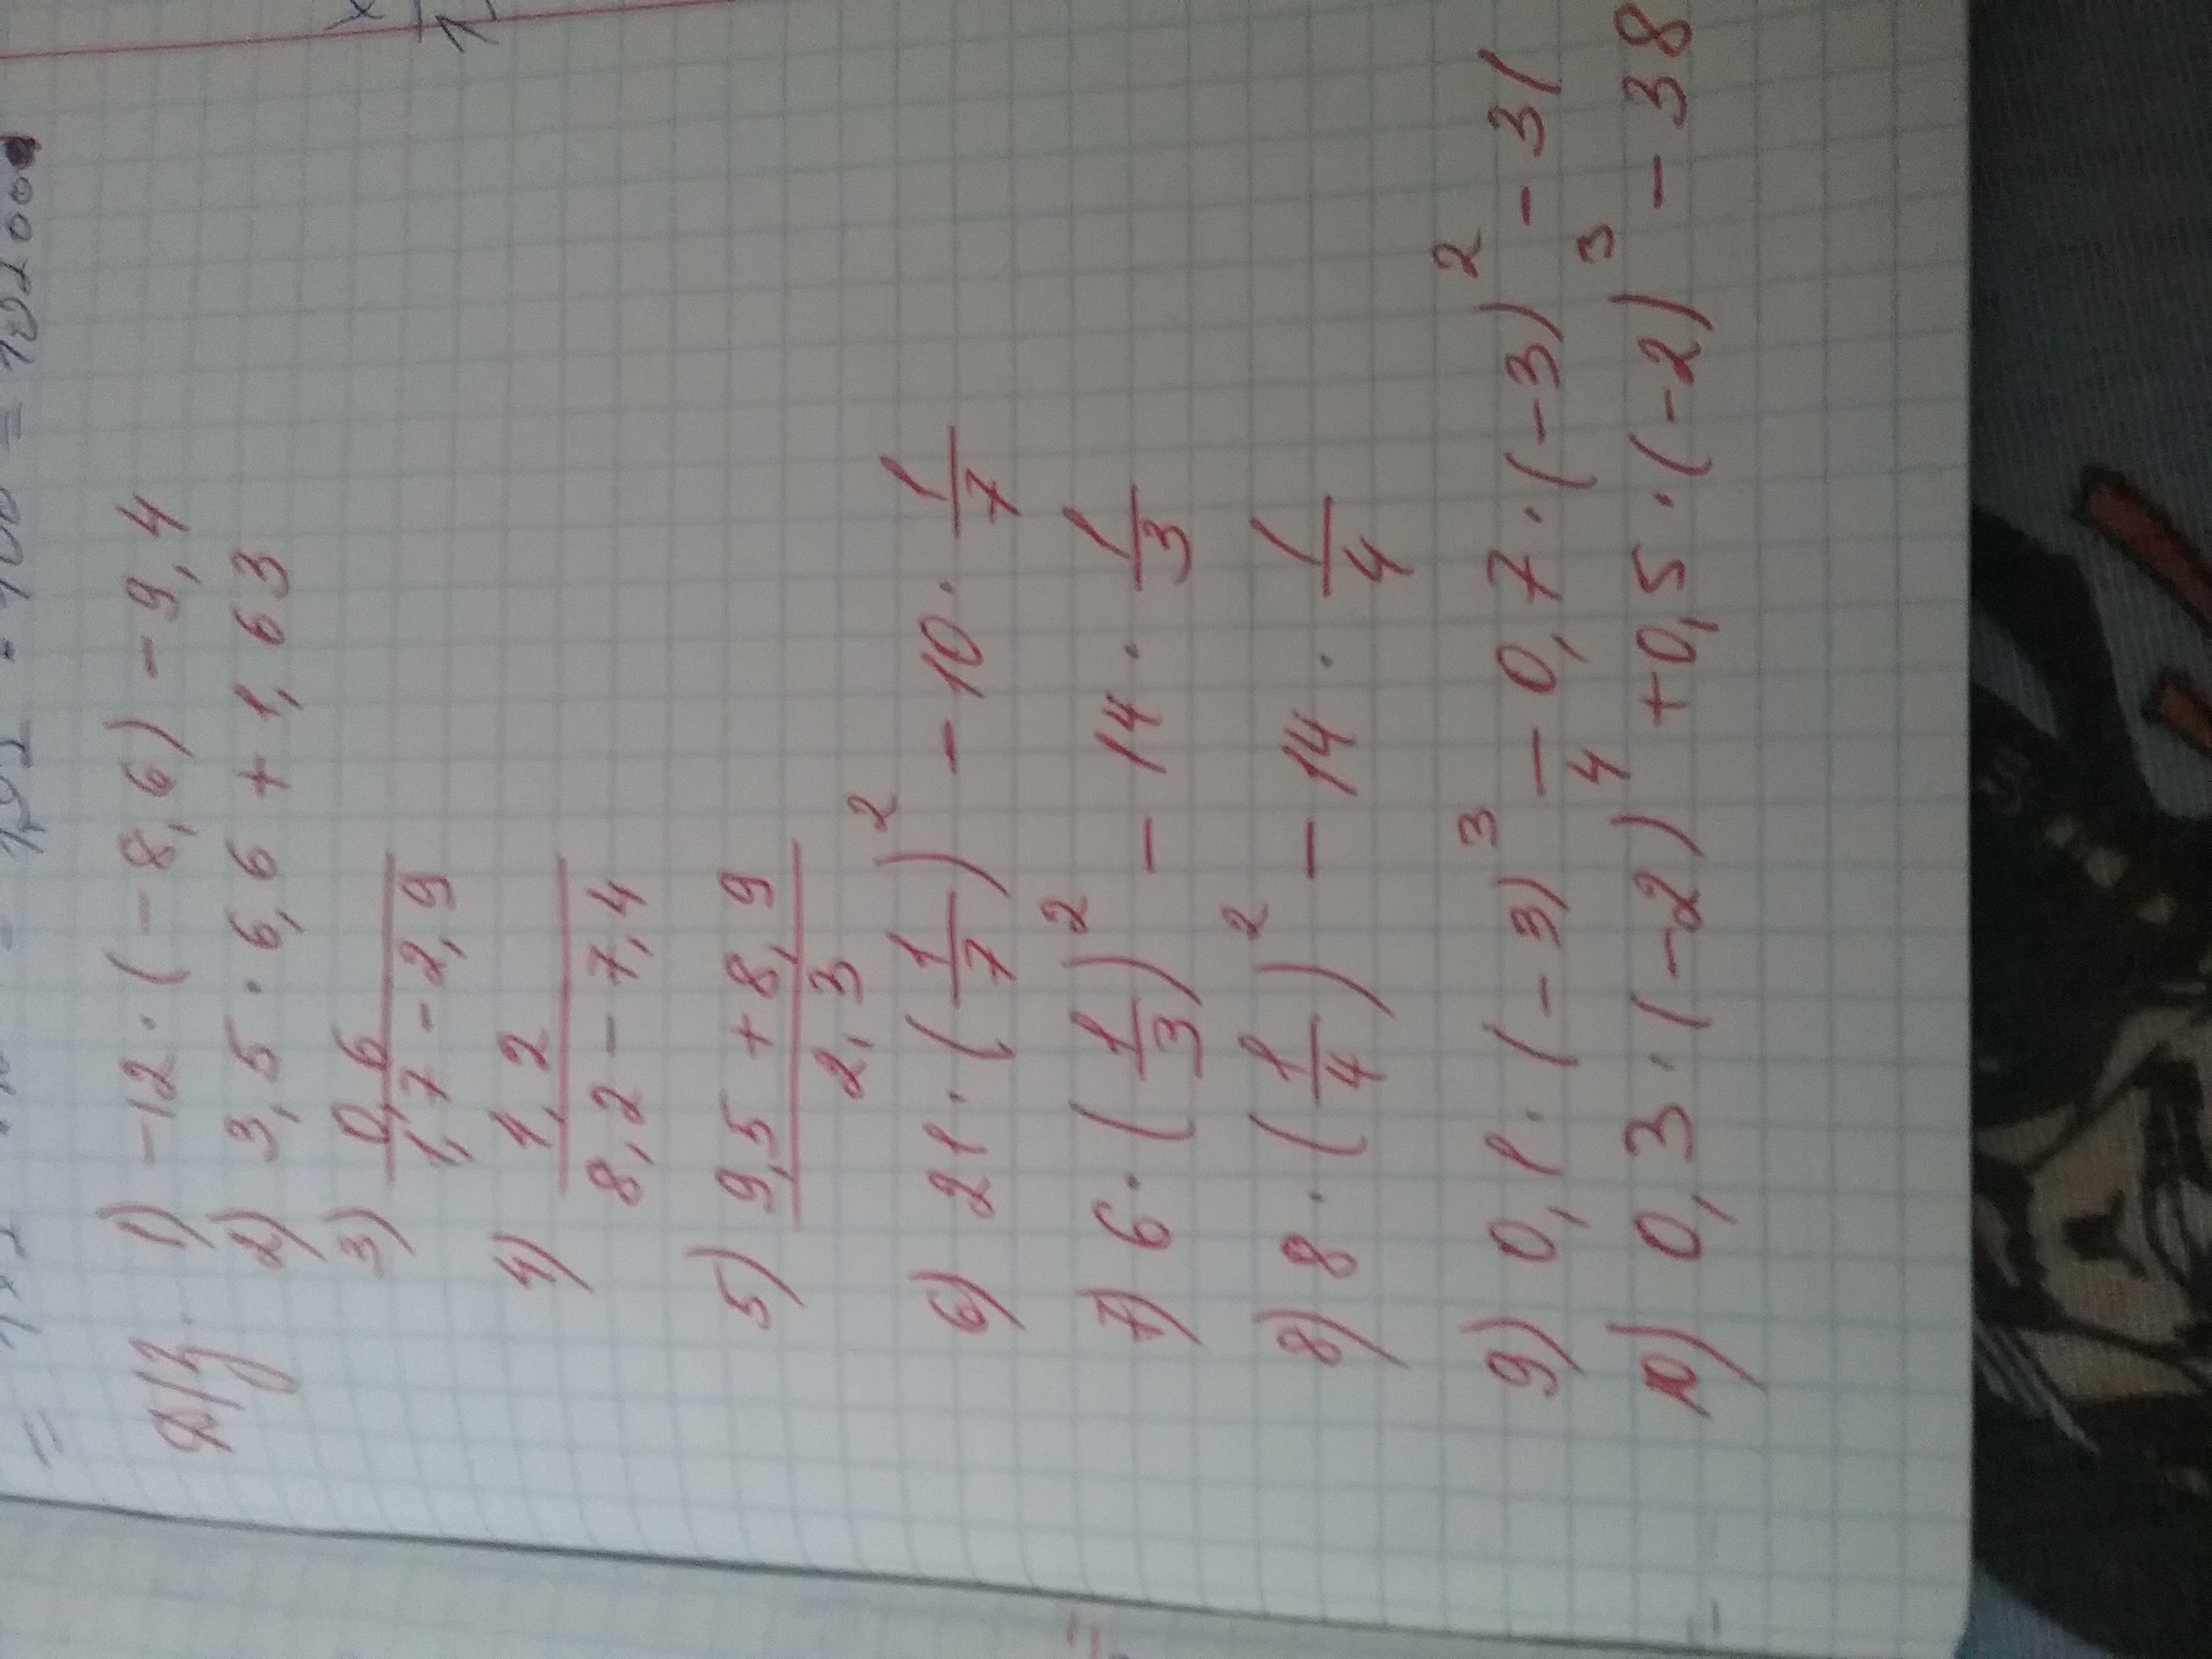 Д/з. 1) -12 · (-8,6) - 9,4
2) 3,5 · 6,6 + 1,63
3) 0,6
1,7 - 2,9
4) 1,2
8,2 - 7,4
5) 9,5 + 8,9
2,3
6) 21 · (1/7)² - 10 · 1/7
7) 6 · (1/3)² - 14 · 1/3
8) 8 · (1/4)² - 14 · 1/4
9) 0,1 · (-3)³ - 0,7 · (-3)² - 31
10) 0,3 · (-2)⁴ + 0,5 · (-2)³ - 38